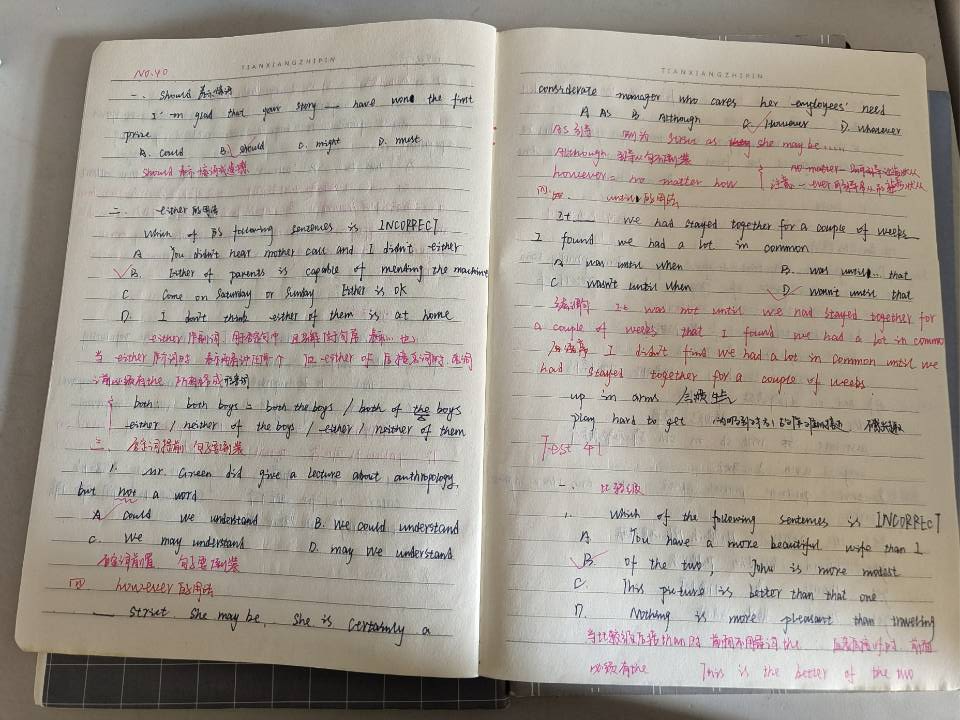 TIANXIANGZHIPIN
No.40
一、should 表示惊讶
I'm glad that your story — have won the first
prize
A. could B. should C. might D. must
should 表示惊讶或遗憾
二、either 的用法
Which of the following sentences is INCORRECT
A You didn't hear mother call and I didn't either
B. Either of parents is capable of mending the machine
C Come on Saturday or Sunday Either is OK
D. I don't think either of them is at home
either 作副词 用否定句中 且只能作句尾 表示 也
当 either 作 时 表示两者中任何一个 但 either of 后接名词时 名词
前必须有 the 所有格或形容词
both: both boys = both the boys / both of the boys
either / neither of the boys / either / neither of them
三、否定词提前 句子要倒装
1. Mr Green did give a lecture about anthropology,
but not a word
A could we understand B. We could understand
C. We may understand D. may we understand
否定词前置 句子要倒装
四 however 的用法
strict she may be, she is certainly a
TIANXIANGZHIPIN
considerate manager who cares her employees' need
A As B Although C. However D. Whenever
As 引导 则为 strict as she may be.....
Although 引导从句不倒装
however = no matter how
no matter 只可引导让步状从
注意 -ever 可引导 从和让步状从
四. until 的用法
It — we had stayed together for a couple of weeks
I found we had a lot in common
A was until when B. was until... that
C wasn't until when D wasn't until that
强调句 It was not until we had stayed together for
a couple of weeks that I found we had a lot in common
I didn't find we had a lot in common until we
had stayed together for a couple of weeks
up in arms
play hard to get
Test 41
一、比较级
1. Which of the following sentences is INCORRECT
A You have a more beautiful wife than I
B of the two, John is more modest
C This picture is better than that one
D. Nothing is more pleasant than traveling
当比较级后接 than 时 前面不用冠词 the 时 前面
必须有 the This is the better of the two